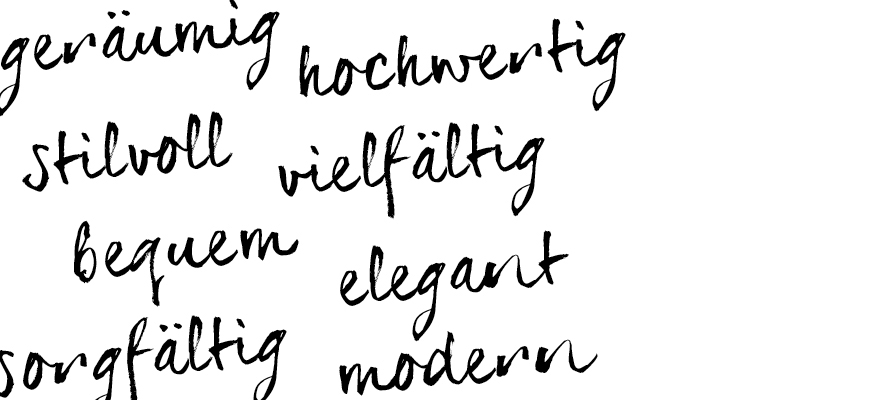 geräumig hochwertig
stilvoll vielfältig
bequem elegant
sorgfältig modern